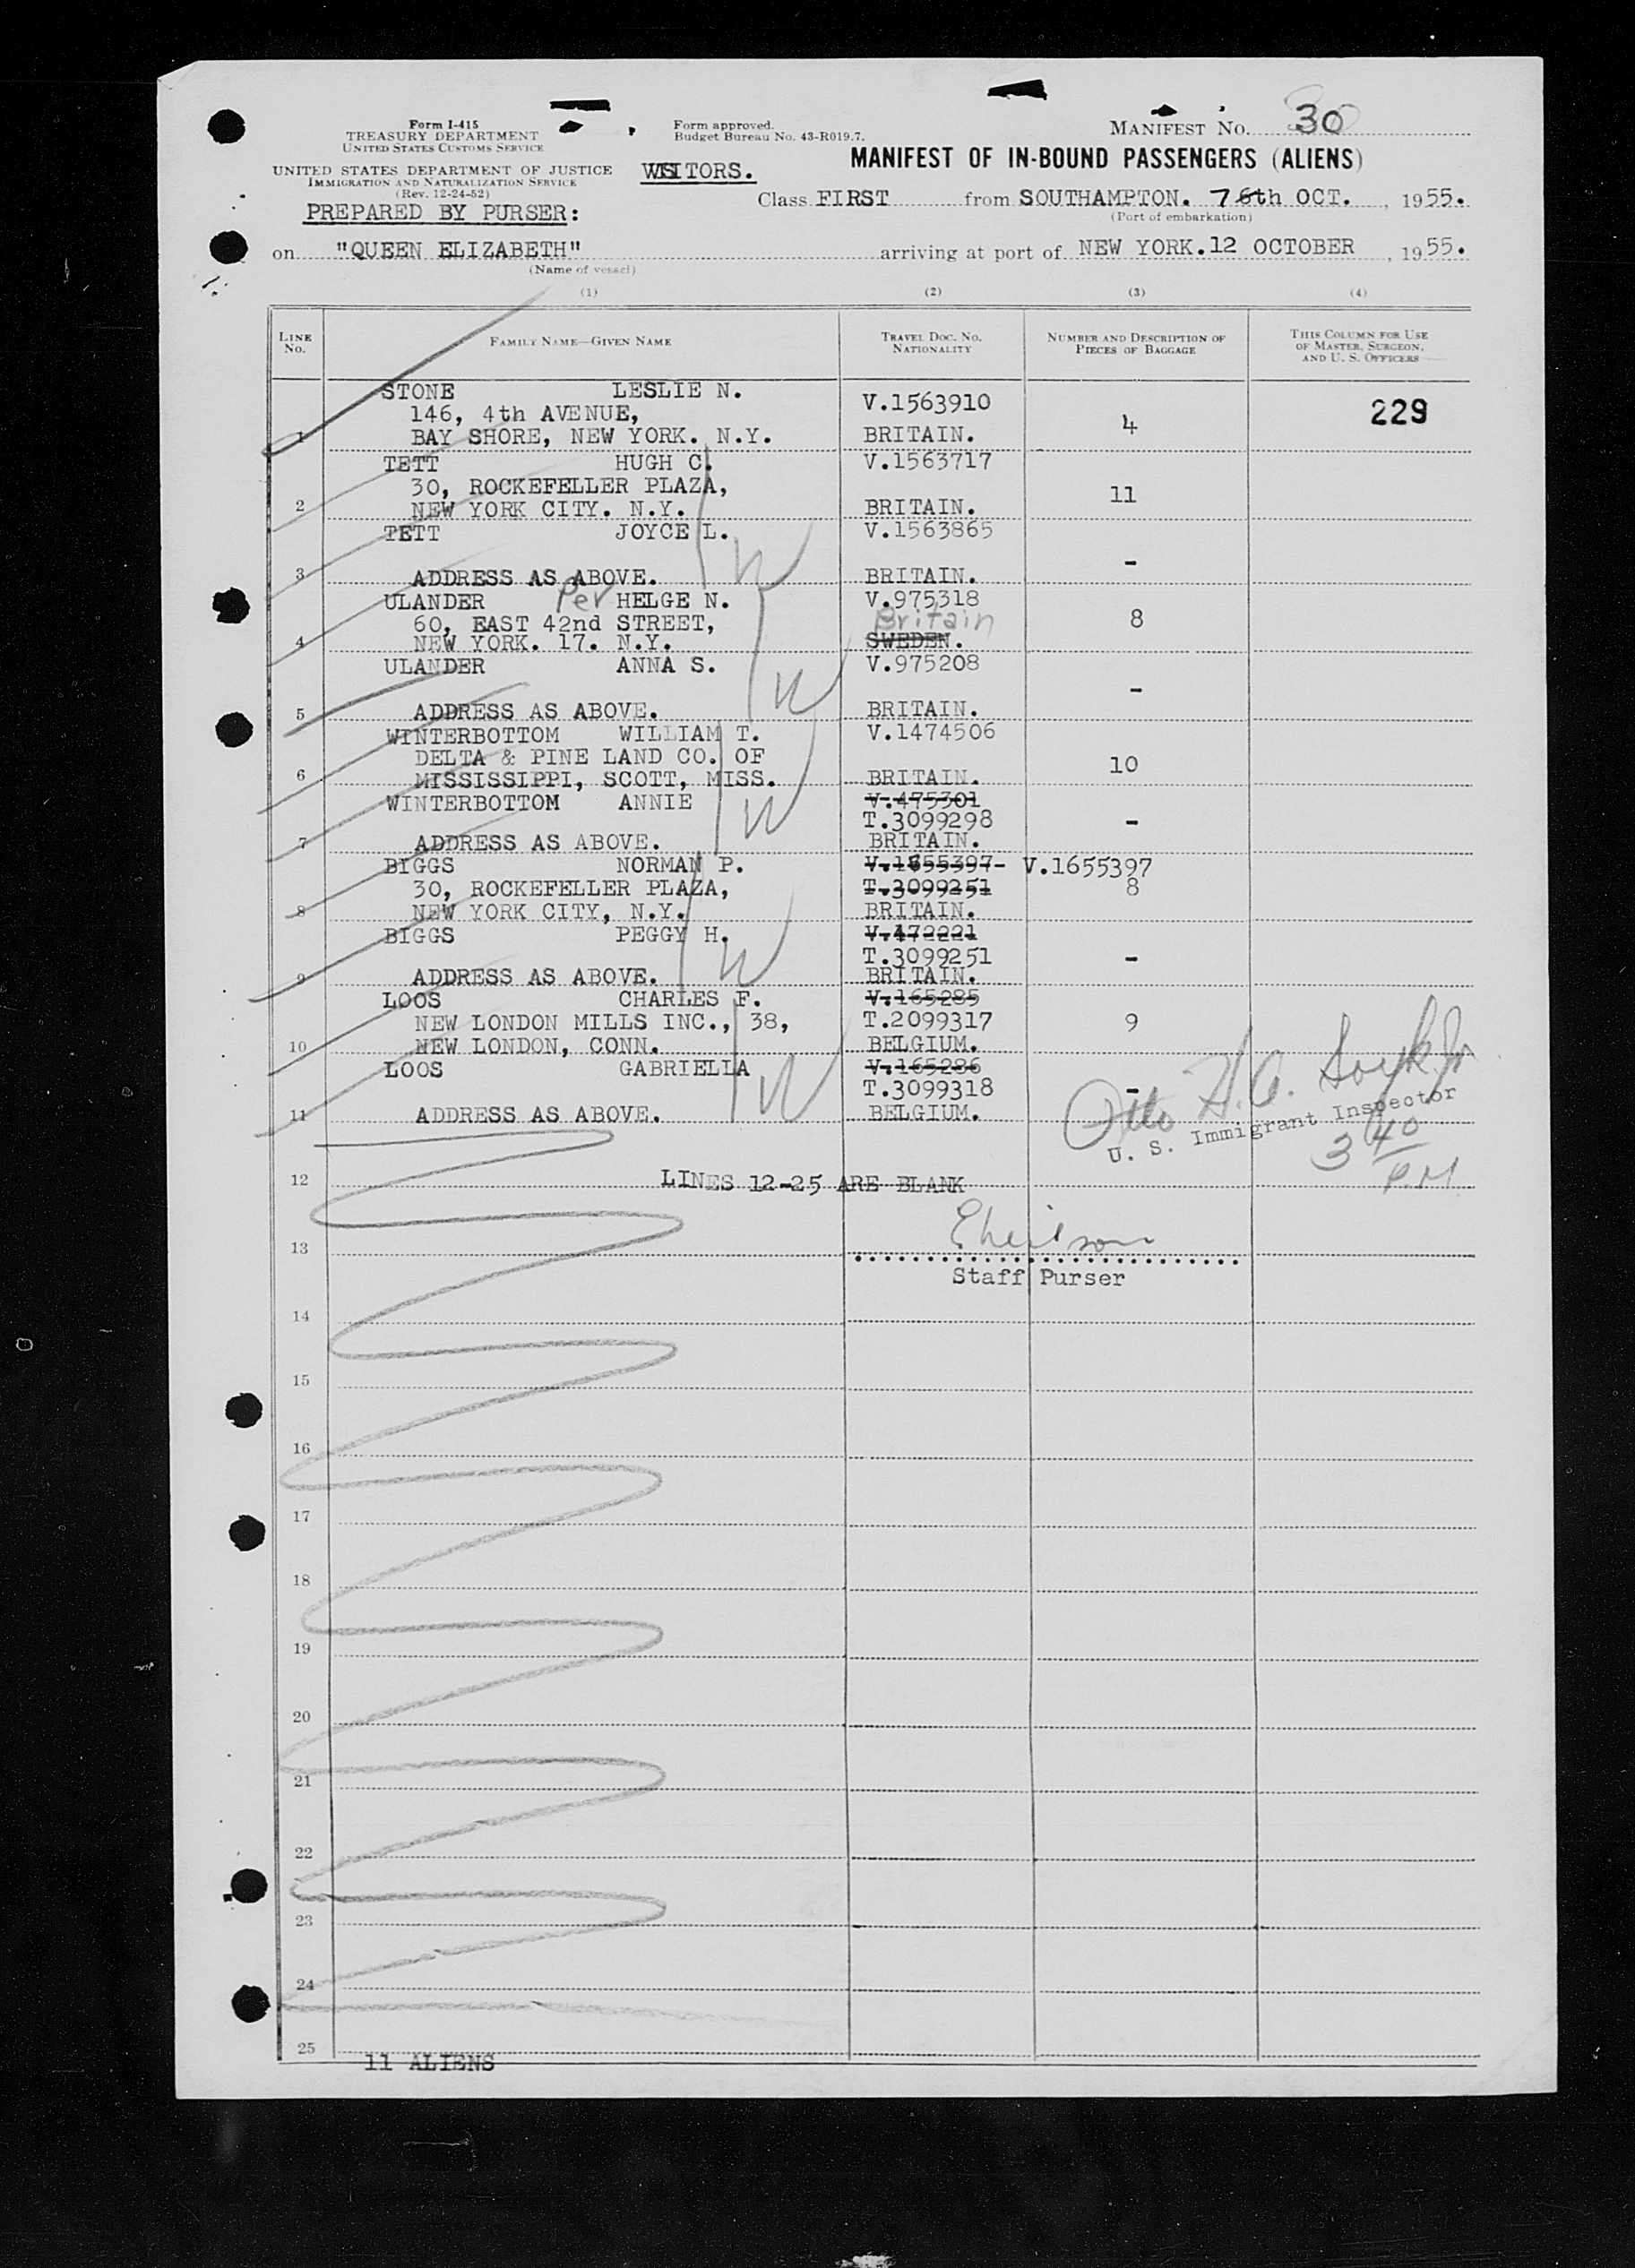 Form I-415
TREASURY DEPARTMENT
UNITED STATES CUSTOMS SERVICE
UNITED STATES DEPARTMENT OF JUSTICE
IMMIGRATION AND NATURALIZATION SERVICE
(Rev. 12-24-52)
PREPARED BY PURSER:
Form approved.
Budget Bureau No. 43-R019.7.
VISITORS.
MANIFEST No. 30
MANIFEST OF IN-BOUND PASSENGERS (ALIENS)
Class FIRST from SOUTHAMPTON. 7 6th OCT. , 1955.
(Port of embarkation)
on "QUEEN ELIZABETH" arriving at port of NEW YORK. 12 OCTOBER , 1955.
(Name of vessel)
(1) (2) (3) (4)
LINE No. FAMILY NAME—GIVEN NAME TRAVEL DOC. No. NATIONALITY NUMBER AND DESCRIPTION OF PIECES OF BAGGAGE THIS COLUMN FOR USE OF MASTER, SURGEON, AND U. S. OFFICERS
STONE LESLIE N. V.1563910 229
146, 4th AVENUE,
1 BAY SHORE, NEW YORK. N.Y. BRITAIN. 4
TETT HUGH C. V.1563717
30, ROCKEFELLER PLAZA, 11
2 NEW YORK CITY. N.Y. BRITAIN.
TETT JOYCE L. V.1563865
3 ADDRESS AS ABOVE. BRITAIN. -
ULANDER Per HELGE N. V.975318
60, EAST 42nd STREET, Britain 8
4 NEW YORK. 17. N.Y. SWEDEN.
ULANDER ANNA S. V.975208
5 ADDRESS AS ABOVE. BRITAIN. -
WINTERBOTTOM WILLIAM T. V.1474506
DELTA & PINE LAND CO. OF 10
6 MISSISSIPPI, SCOTT, MISS. BRITAIN.
WINTERBOTTOM ANNIE V.475301
T.3099298 -
7 ADDRESS AS ABOVE. BRITAIN.
BIGGS NORMAN P. V.1655397- V.1655397
30, ROCKEFELLER PLAZA, T.3099251 8
8 NEW YORK CITY, N.Y. BRITAIN.
BIGGS PEGGY H. V.472221
T.3099251 -
9 ADDRESS AS ABOVE. BRITAIN.
LOOS CHARLES F. V.165285
NEW LONDON MILLS INC., 38, T.2099317 9
10 NEW LONDON, CONN. BELGIUM.
LOOS GABRIELLA V.165286
T.3099318 -
11 ADDRESS AS ABOVE. BELGIUM.
Otto H. A.
U. S. Immigrant Inspector
3 40
P.M
12 LINES 12-25 ARE BLANK
13
Staff Purser
14
15
16
17
18
19
20
21
22
23
24
25
11 ALIENS